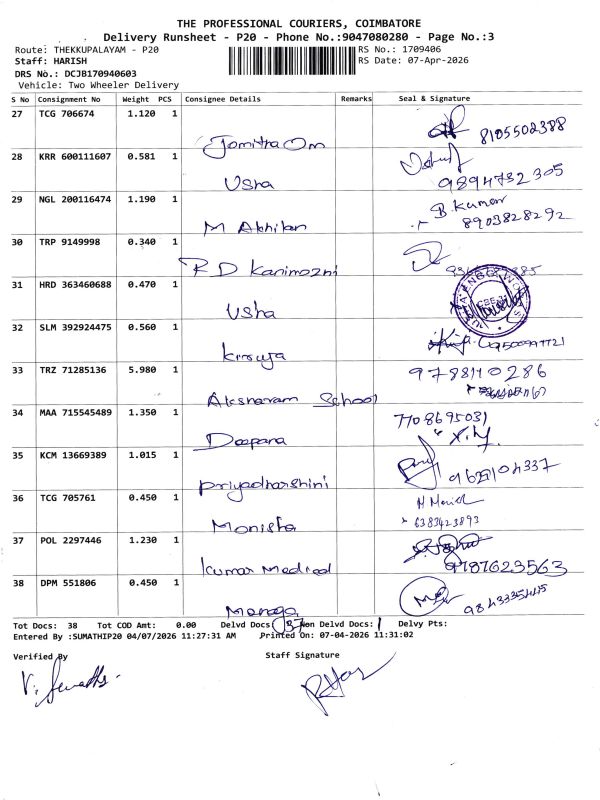 THE PROFESSIONAL COURIERS, COIMBATORE
Delivery Runsheet - P20 - Phone No.:9047080280 - Page No.:3
Route: THEKKUPALAYAM - P20 RS No.: 1709406
Staff: HARISH RS Date: 07-Apr-2026
DRS No.: DCJB170940603
Vehicle: Two Wheeler Delivery
S No Consignment No Weight PCS Consignee Details Remarks Seal & Signature
27 TCG 706674 1.120 1 8105502388
28 KRR 600111607 0.581 1 Usha 9894732305
29 NGL 200116474 1.190 1 M Akhilan B. Kumar 8903828292
30 TRP 9149998 0.340 1 R D Kanimozhi
31 HRD 363460688 0.470 1 Usha
32 SLM 392924475 0.560 1
33 TRZ 71285136 5.980 1 Aksharam School 9788110286
34 MAA 715545489 1.350 1 Deepana 7708695031
35 KCM 13669389 1.015 1 Priyadharshini
36 TCG 705761 0.450 1 Monisha 6383423893
37 POL 2297446 1.230 1 Kumar Medical 9787623563
38 DPM 551806 0.450 1
Tot Docs: 38 Tot COD Amt: 0.00 Delvd Docs: 37 Non Delvd Docs: 1 Delvy Pts:
Entered By :SUMATHIP20 04/07/2026 11:27:31 AM Printed On: 07-04-2026 11:31:02
Verified By Staff Signature